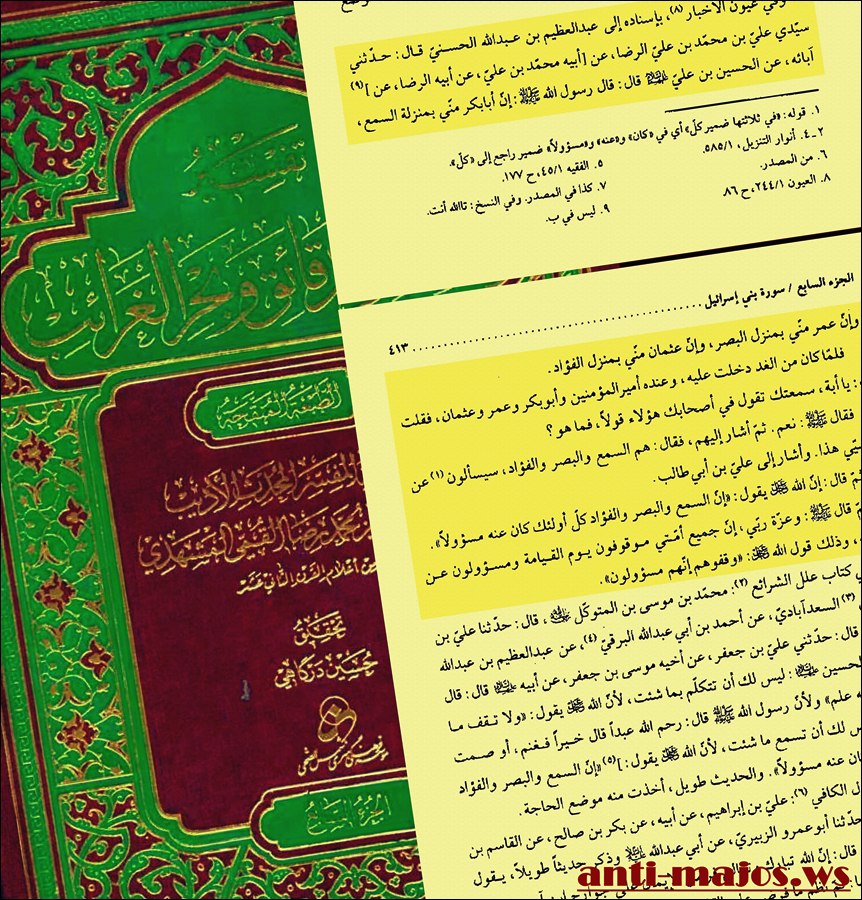 تفسير
دقائق وبحر الغرائب
الطبعة المنقحة
المفسر المحدث الأديب
محمد رضا القمي المشهدي
من أعلام القرن الثاني عشر
تحقيق
حسين درگاهي
الجزء السابع
وفي عيون الأخبار (٨)، بإسناده إلى عبدالعظيم بن عبدالله الحسنيّ قال: حدّثني
سيّدي عليّ بن محمّد بن عليّ الرضا، عن [أبيه محمّد بن عليّ، عن أبيه الرضا، عن ](٩)
آبائه، عن الحسين بن عليّ عليه السلام قال: قال رسول الله ﷺ: إنّ أبابكر منّي بمنزلة السمع،
١. قوله: «في ثلاثتها ضمير كلّ» أي في «كان» و«عنه» و«مسؤولاً» ضمير راجع إلى «كلّ».
٢-٤. أنوار التنزيل، ٥٨٥/١.
٥. الفقيه ٤٥/١، ح ١٧٧.
٦. من المصدر.
٧. كذا في المصدر. وفي النسخ: تاالله أنت.
٨. العيون ٢٤٤/١، ح ٨٦
٩. ليس في ب.
الجزء السابع / سورة بني إسرائيل ........ ٤١٣
وإنّ عمر منّي بمنزل البصر، وإنّ عثمان منّي بمنزل الفؤاد.
فلمّا كان من الغد دخلت عليه، وعنده أميرالمؤمنين وأبوبكر وعمر وعثمان، فقلت
: يا أبة، سمعتك تقول في أصحابك هؤلاء قولاً، فما هو؟
فقال ﷺ: نعم. ثمّ أشار إليهم، فقال: هم السمع والبصر والفؤاد، سيسألون (١) عن
هذا. وأشار إلى عليّ بن أبي طالب.
قال: إنّ الله يقول: «وإنّ السمع والبصر والفؤاد كلّ أولئك كان عنه مسؤولاً».
قال ﷺ: وعزّة ربّي، إنّ جميع أمّتي موقوفون يوم القيامة ومسؤولون عن
، وذلك قول الله: «وقفوهم إنّهم مسؤولون».
كتاب علل الشرائع (٢): محمّد بن موسى بن المتوكّل، قال: حدّثنا عليّ بن
(٣) السعدآباديّ، عن أحمد بن أبي عبدالله البرقيّ (٤)، عن عبدالعظيم بن عبدالله
قال: حدّثني عليّ بن جعفر، عن أخيه موسى بن جعفر، عن أبيه قال: قال
الحسين: ليس لك أن تتكلّم بما شئت، لأنّ الله يقول: «ولا تقف ما
علم» ولأنّ رسول الله ﷺ قال: رحم الله عبداً قال خيراً فغنم، أو صمت
لك أن تسمع ما شئت، لأنّ الله يقول: ](٥) «إنّ السمع والبصر والفؤاد
عنه مسؤولاً». والحديث طويل، أخذت منه موضع الحاجة.
الكافي (٦): عليّ بن إبراهيم، عن أبيه، عن بكر بن صالح، عن القاسم بن
حدّثنا أبوعمرو الزبيريّ، عن أبي عبدالله وذكر حديثاً طويلاً، يقول
قال: إنّ الله تبارك
anti-majos.ws